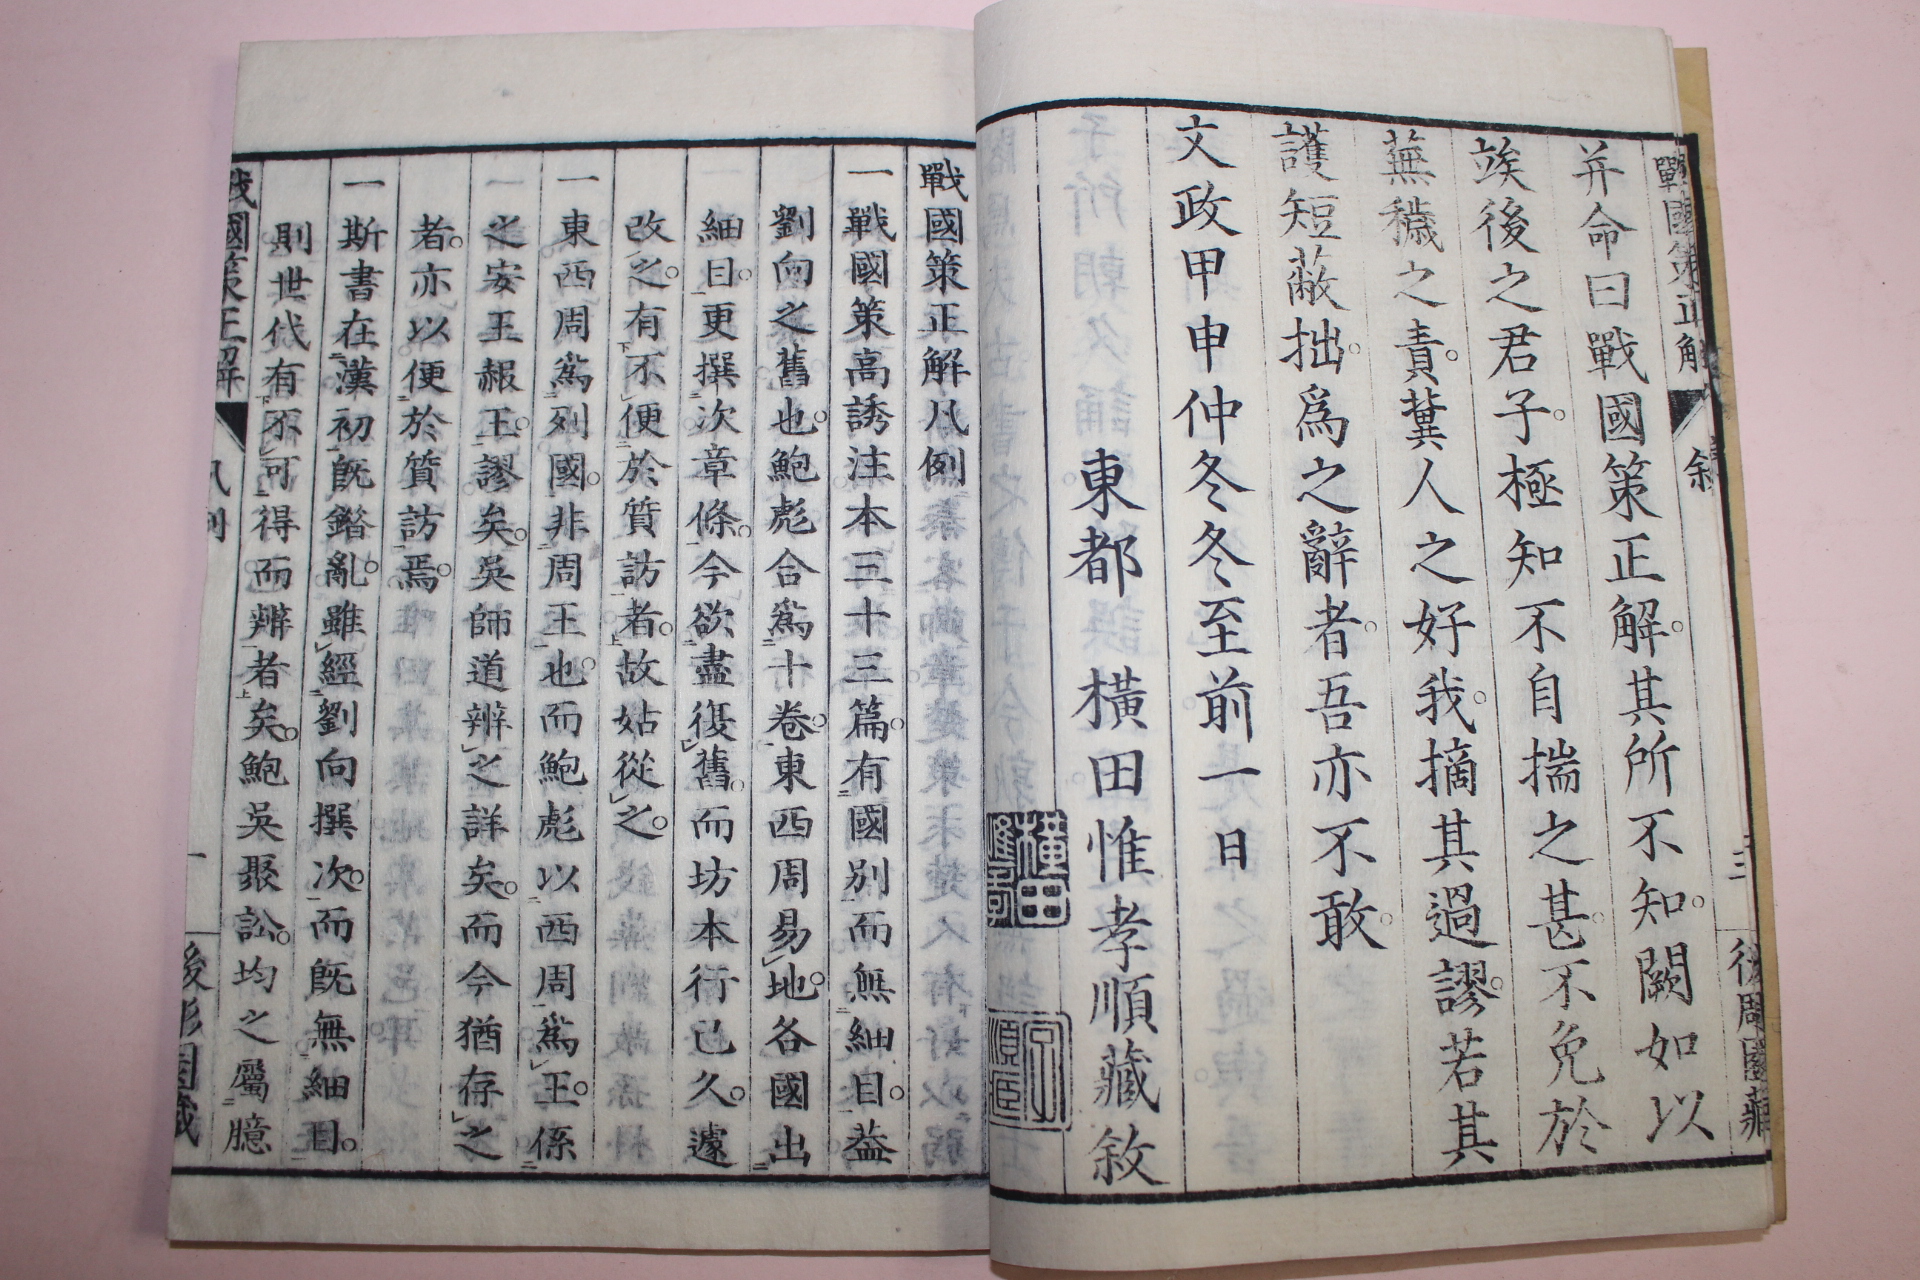 戰國策正解
敘
三
後凋園藏
并命曰戰國策正解。其所不知。闕如以
竢後之君子。極知不自揣之甚。不免於
蕪穢之責。冀人之好我。摘其過謬。若其
護短蔽拙。爲之辭者。吾亦不敢。
文政甲申仲冬冬至前一日
東都 橫田惟孝順藏敘
橫田惟孝
戰國策正解凡例
一戰國策高誘注本三十三篇。有國別而無細目。蓋
劉向之舊也。鮑彪合爲十卷。東西周易地。各國出
細目。更撰次章條。今欲盡復舊。而坊本行已久。遽
改之。有不便於質訪者。故姑從之。
一東西周爲列國。非周王也。而鮑彪以西周爲王。係
之安王赧王。謬矣。吳師道辨之詳矣。而今猶存之
者。亦以便於質訪焉。
一斯書在漢初既錯亂。雖經劉向撰次。而既無細目。
則世代有不可得而辨者矣。鮑吳聚訟。均之屬臆
戰國策正解
凡例
一
後凋園藏